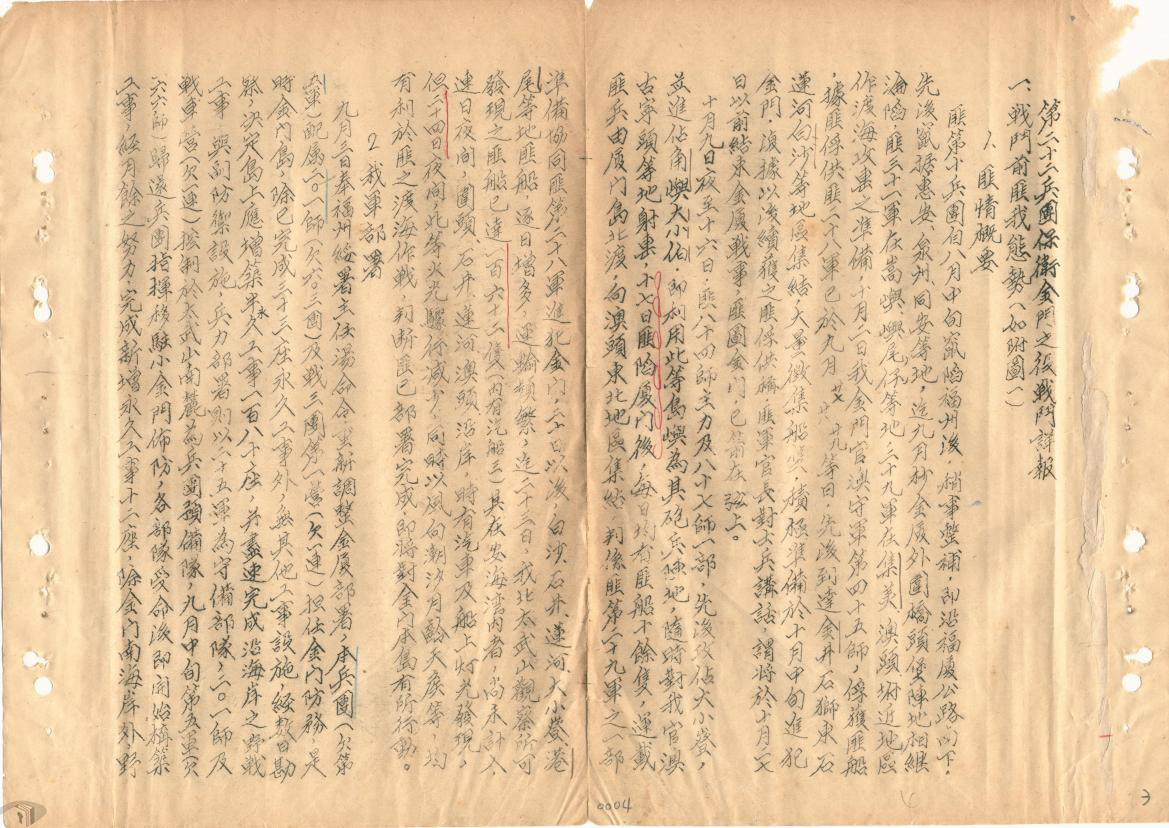 第二十二兵團保衛金門之役戰鬥詳報
一、戰鬥前匪我態勢（如附圖一）
1. 匪情概要
匪第十兵團自八月中旬竄陷福州後，稍事整補，即沿福廈公路南下，
先後竄據惠安、泉州、同安等地，迄九月杪金廈外圍橋頭堡陣地相繼
淪陷，匪三十一軍在嵩嶼、嶼尾保等地，二十九軍在集美、澳頭附近地區
作渡海攻擊之準備，十月二日我金門官澳守軍第四十五師，俘獲匪船
，據匪俘供匪二十八軍已於九月 廿九等日，先後到達金井石獅東石
蓮河白沙等地區集結大量徵集船隻，積極準備於十月中旬進犯
金門，復據以後續獲之匪俘供稱，匪軍官長對士兵講話，謂將於十月二七
日以前結束金廈戰事，匪圖金門，已箭在弦上。
十月九日夜至十六日，匪八十四師主力及八十七師一部，先後攻佔大小嶝，
並進佔角嶼大小伯，即利用此等島嶼為其砲兵陣地，隨時對我官澳
古寧頭等地射擊，十七日匪陷廈門後，每日均有匪船十餘隻，運載
匪兵由廈門島北渡向澳頭東北地區集結，判係匪第二十九軍之一部
準備協同匪第二十八軍進犯金門，二十日以後，白沙石井蓮河大小嶝港
尾等地匪船，逐日增多，運輸頻繁，迄二十三日，我北太武山觀察所可
發現之匪船已達一百六十二隻（內有汽船三）其在安海灣內者，尚未計入，
連日夜間，圍頭、石井、蓮河澳頭沿岸，時有汽車及船上灯光發現，
但二十四日夜間，此等火光驟行減少，同時以風向潮汐月齡天候等，均
有利於匪之渡海作戰，判斷匪已部署完成即將對金門本島有所行動。
2. 我軍部署
九月三日奉福州綏署主任湯命令重新調整金廈部署，本兵團（欠第
五軍）配屬二〇一師（欠六〇三團）及戰三團第一營（欠一連）担任金門防務，是
時金門島，除已完成三十三座永久工事外，無其他工事設施，經數日勘
察，決定島上應增築半永久工事一百八十座，并盡速完成沿海岸之野戰
工事，與副防禦設施，兵力部署則以二十五軍為守備部隊，二〇一師及
戰車營（欠一連）控制於太武山南麓為兵團預備隊，九月中旬第五軍（欠
一六六師）歸還兵團指揮後，駐小金門佈防，各部隊受命後即開始構築
工事，經月餘之努力，完成新增永久工事十二座，除金門南海岸外，野
0004